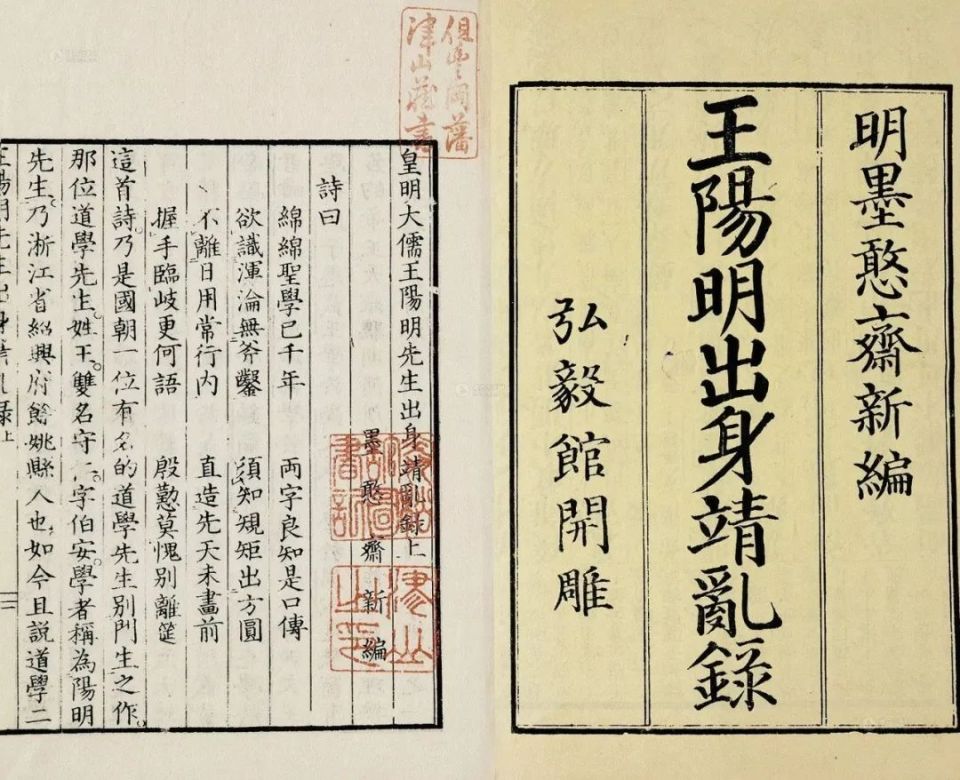 明墨憨齋新編
王陽明出身靖亂錄
弘毅館開雕
皇明大儒王陽明先生出身靖亂錄上
墨憨齋新編
詩曰
綿綿聖學已千年 兩字良知是口傳
欲識渾淪無斧鑿 須知規矩出方圓
不離日用常行內 直造先天未畫前
握手臨岐更何語 殷懃莫愧別離筵
這首詩乃是國朝一位有名的道學先生別門生之作
那位道學先生姓王雙名守 字伯安學者稱為陽明
先生乃浙江省紹興府餘姚縣人也如今且說道學二
王陽明先生出身靖亂錄上